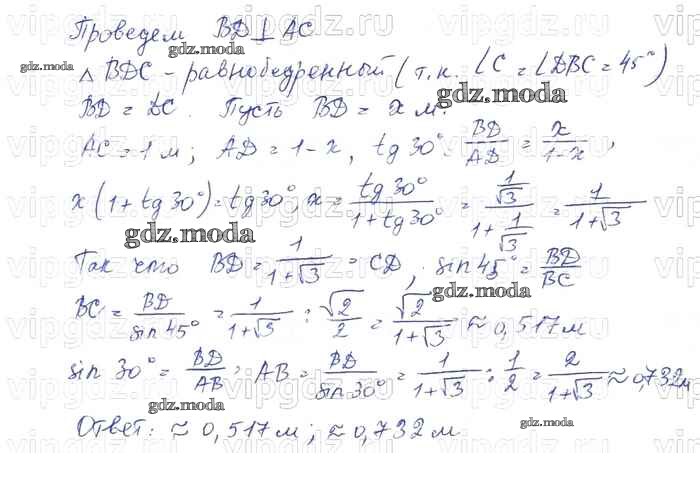 Проведем BD ⊥ AC
gdz.moda
△ BDC – равнобедренный (т.к. ∠C = ∠DBC = 45°)
gdz.moda
BD = DC. Пусть BD = x м.
gdz.moda
AC = 1 м; AD = 1 - x, tg 30° = BD/AD = x/(1-x),
x(1 + tg 30°) = tg 30°, x = tg 30°/(1 + tg 30°) = (1/√3)/(1 + 1/√3) = 1/(1+√3)
gdz.moda
Так что BD = 1/(1+√3) = CD, sin 45° = BD/BC
gdz.moda
BC = BD/sin 45° = 1/(1+√3) : √2/2 = √2/(1+√3) ≈ 0,517 м
gdz.moda
sin 30° = BD/AB; AB = BD/sin 30° = 1/(1+√3) : 1/2 = 2/(1+√3) ≈ 0,732 м
gdz.moda
gdz.moda
Ответ: ≈ 0,517 м; ≈ 0,732 м